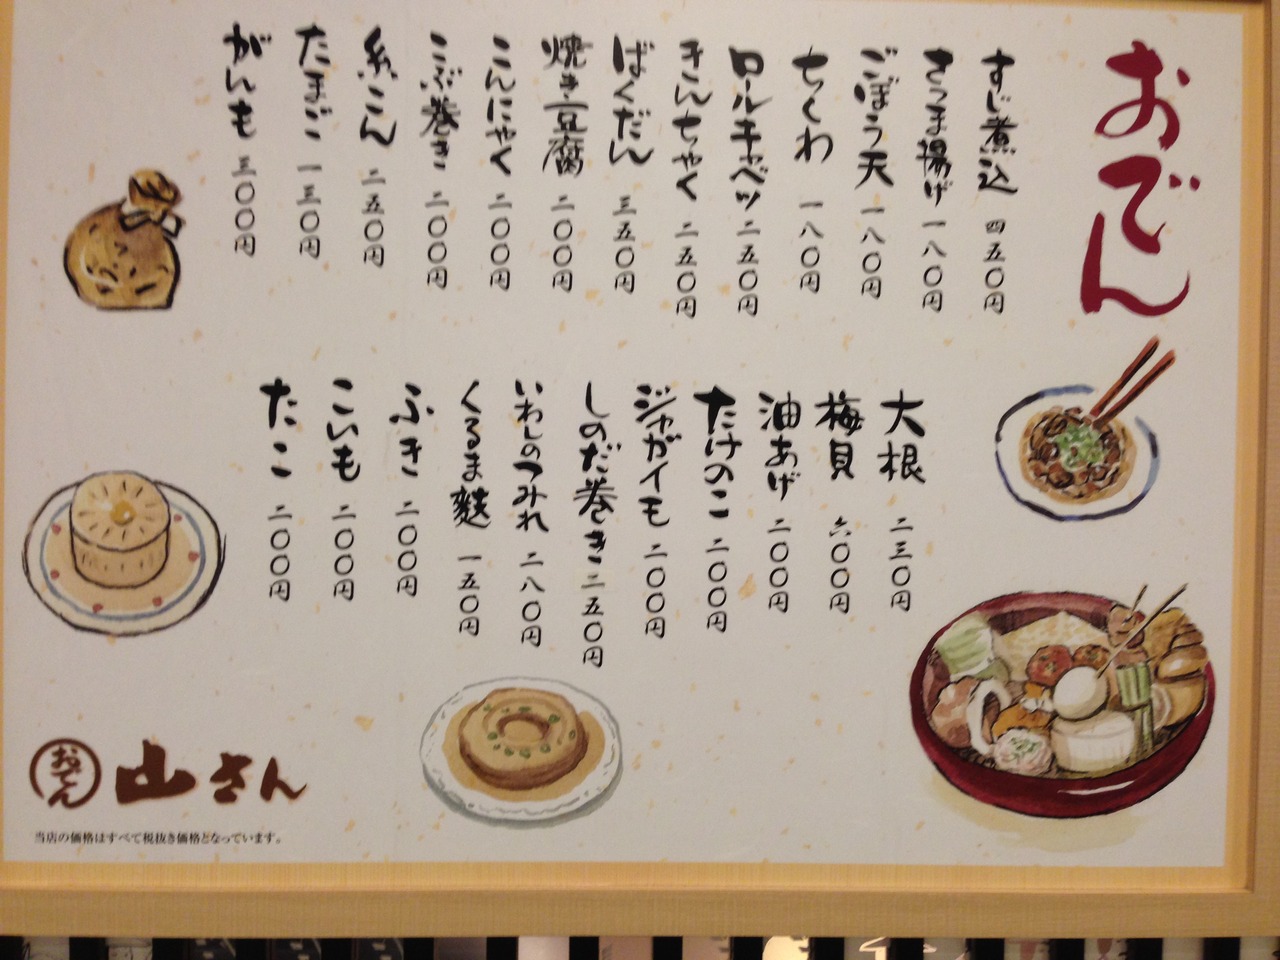 おでん
すじ煮込 四五〇円
さつま揚げ 一八〇円
ごぼう天 一八〇円
ちくわ 一八〇円
ロールキャベツ 二五〇円
きんちゃく 二五〇円
ばくだん 三五〇円
焼き豆腐 二〇〇円
こんにゃく 二〇〇円
こぶ巻き 二〇〇円
糸こん 二五〇円
たまご 一三〇円
がんも 三〇〇円
大根 二三〇円
梅貝 六〇〇円
油あげ 二〇〇円
たけのこ 二〇〇円
ジャガイモ 二〇〇円
しのだ巻き 二五〇円
いわしのつみれ 二八〇円
くるま麩 一五〇円
ふき 二〇〇円
こいも 二〇〇円
たこ 二〇〇円
おでん 山さん
当店の価格はすべて税抜き価格となっています。